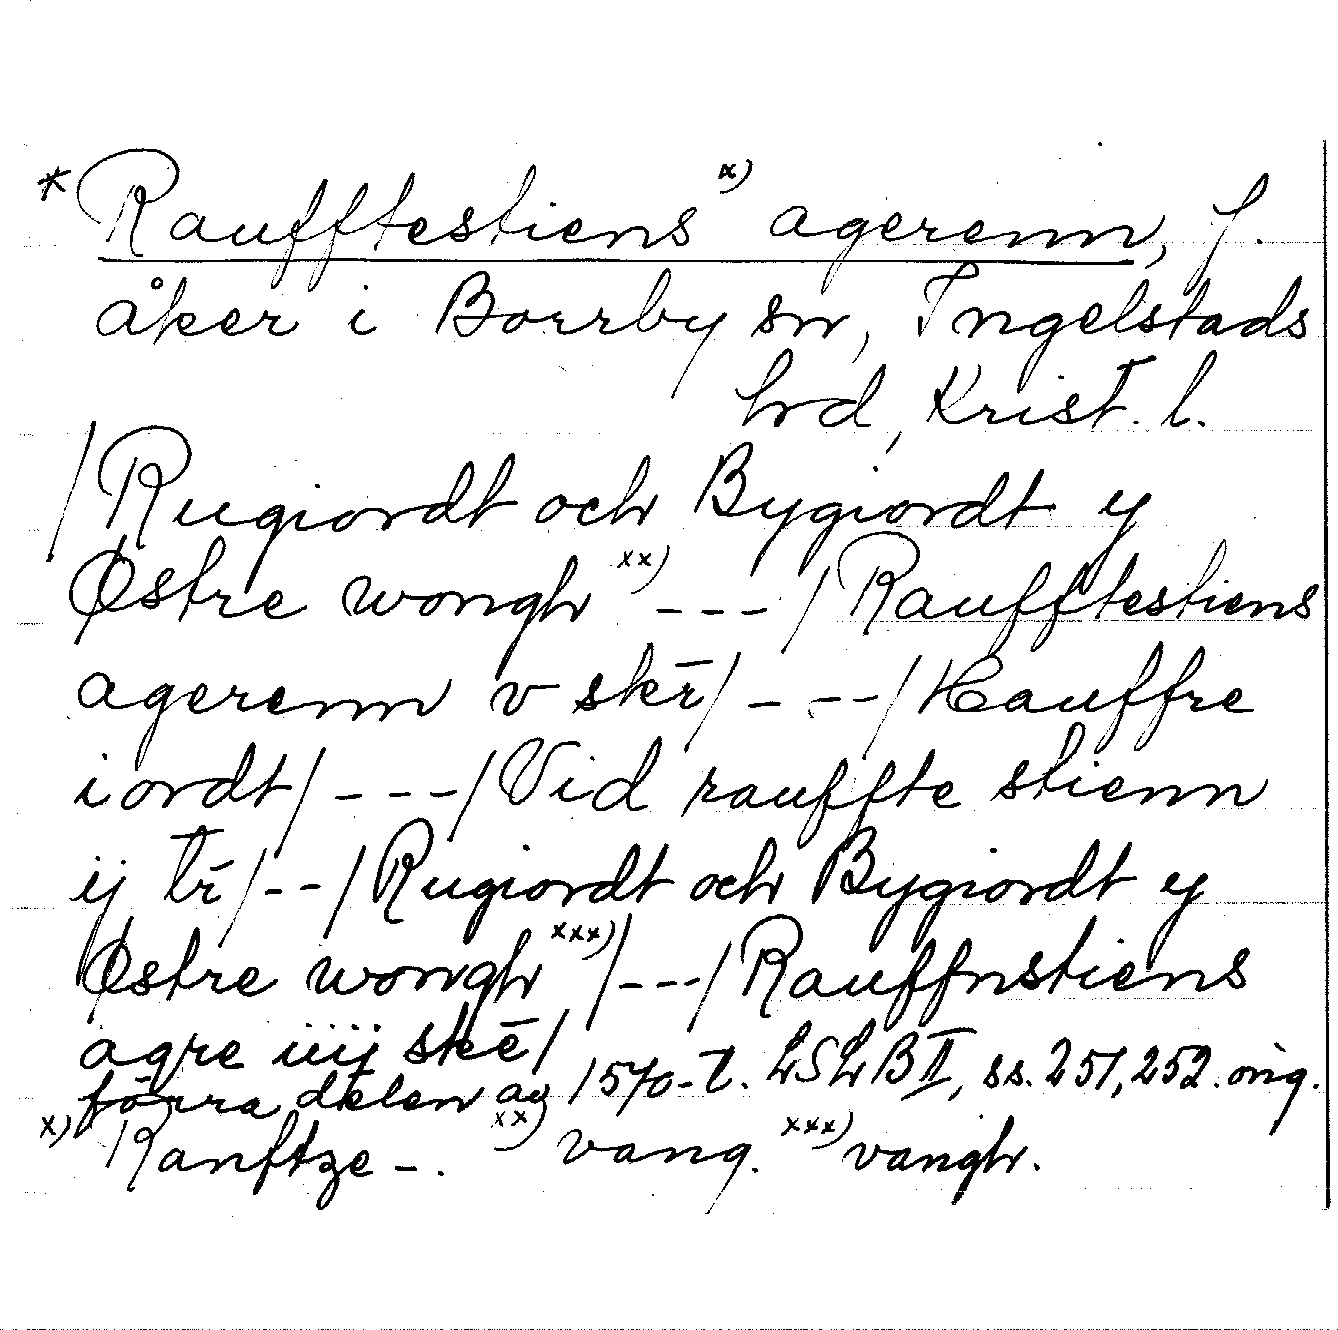 * Raufftestiens x) agerenn, f.
åker i Borrby sn, Ingelstads
hrd, Krist. l.
/Rugiordt och Bygiordt y
Østre wongh xx) --- / Raufftestiens
agerenn v skr̄/ --- / Hauffre
iordt/ --- / Vid rauffte stienn
ij tr̄/ -- / Rugiordt och Bygiordt y
Østre wongh xxx)/ --- / Rauffnstiens
agre iiij skē/
förra delen av 1570-t. LSLB II, ss. 251, 252. orig.
x) Ranftze-. xx) vang. xxx) vangh.